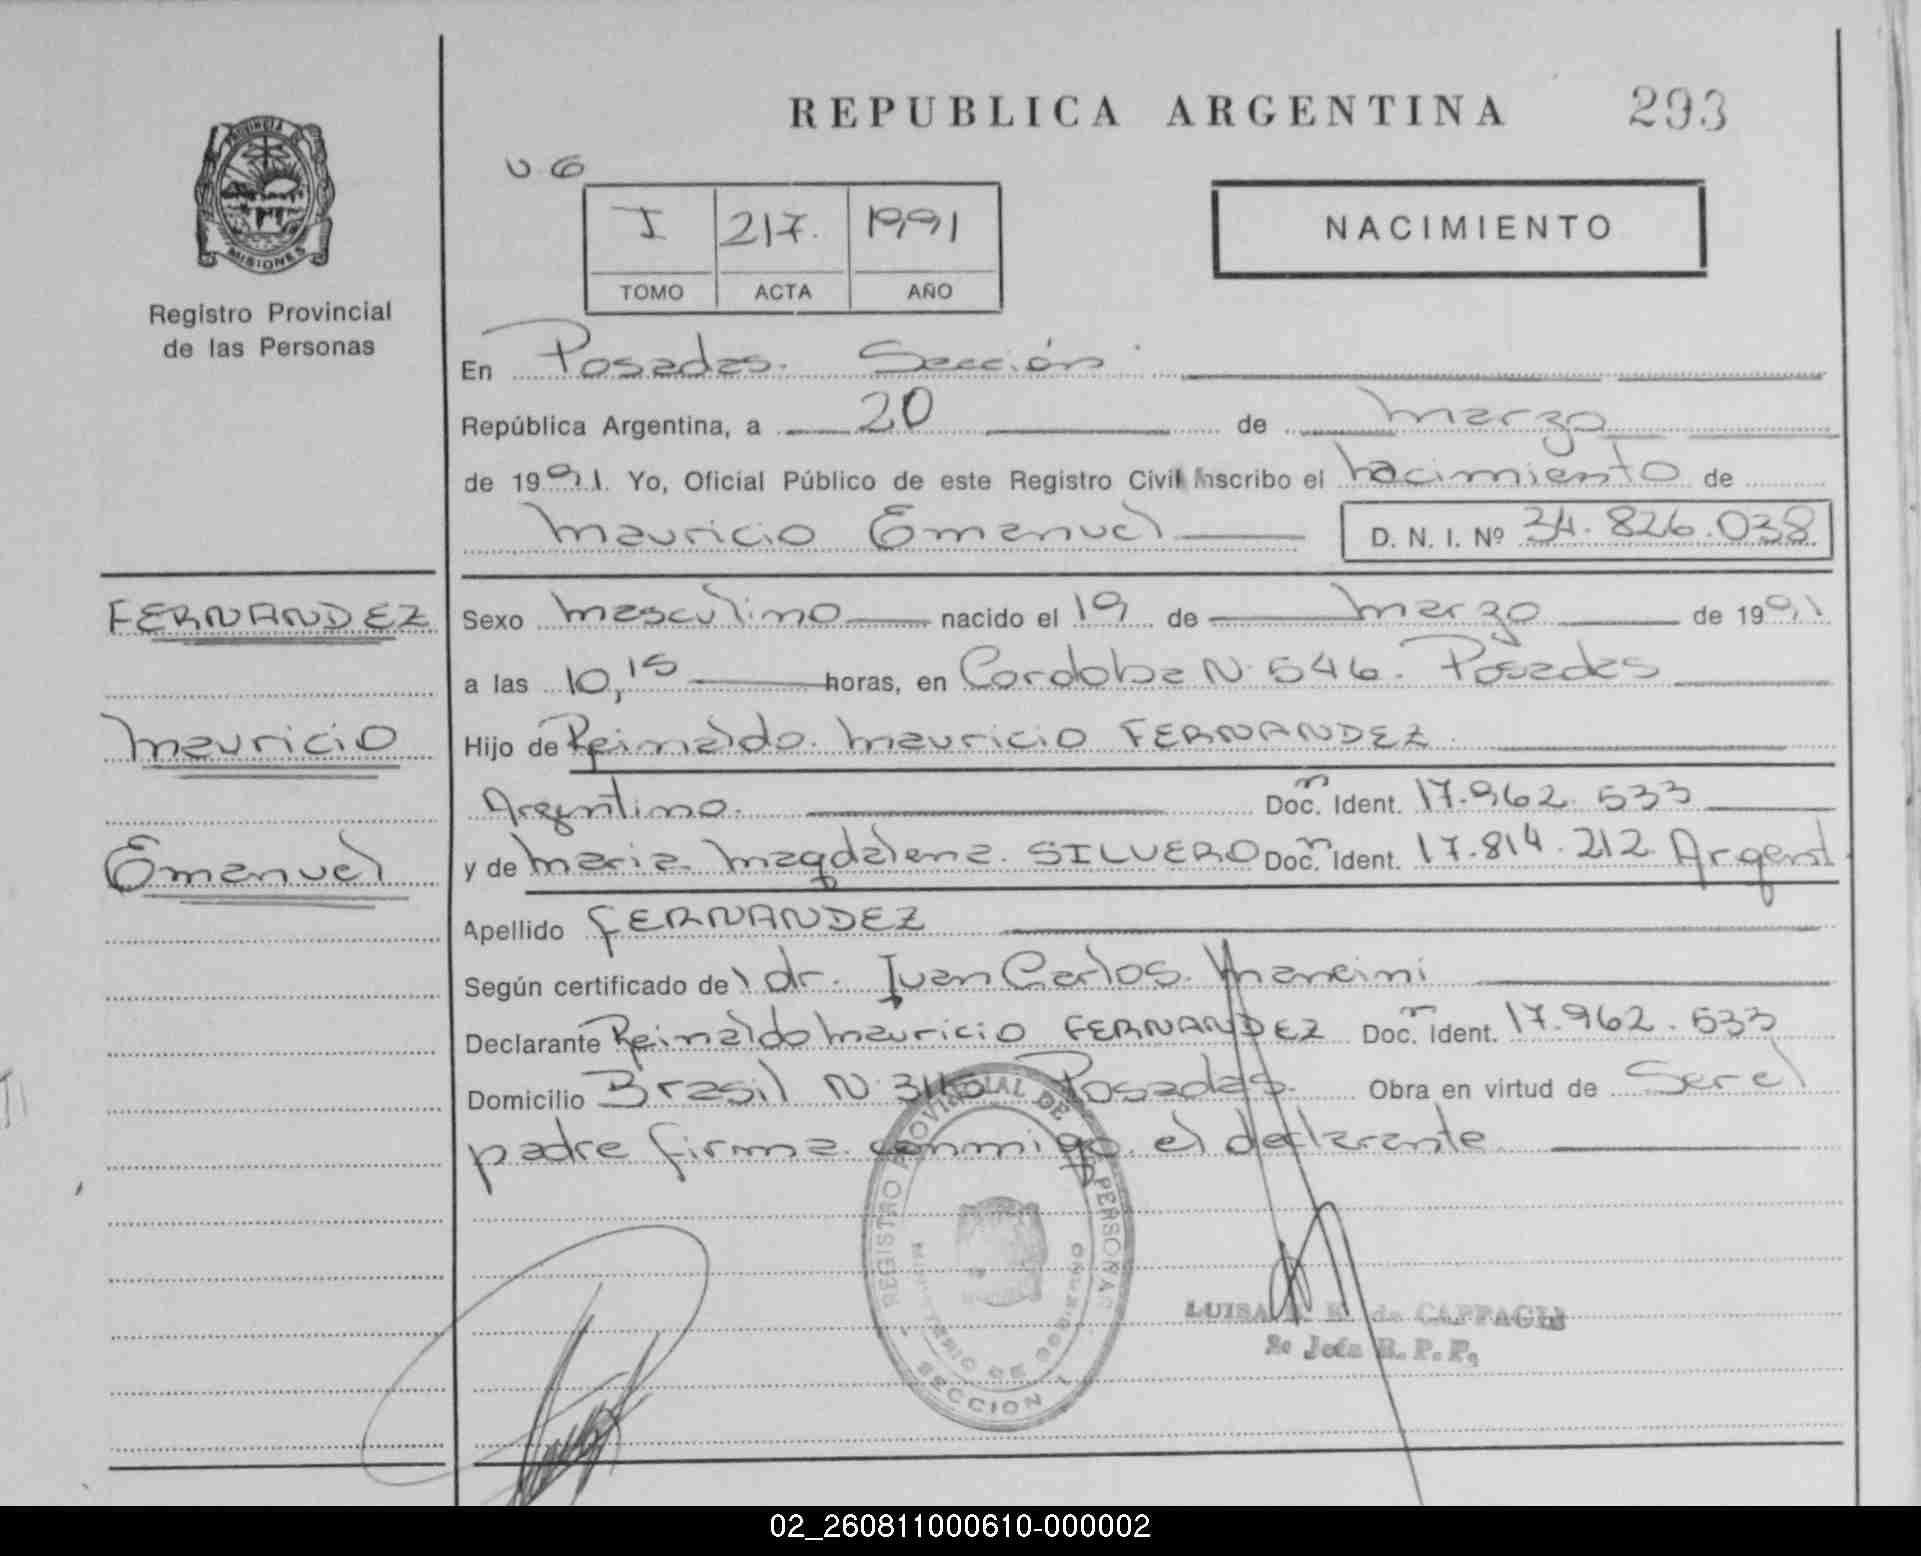 REPUBLICA ARGENTINA 293
PROVINCIA DE
MISIONES
Registro Provincial
de las Personas
I 217. 1991
TOMO ACTA AÑO
NACIMIENTO
En Posadas. Sección
República Argentina, a 20 de marzo
de 1991. Yo, Oficial Público de este Registro Civil Inscribo el nacimiento de
Mauricio Emanuel D. N. I. Nº 34.826.038
FERNANDEZ
Mauricio
Emanuel
Sexo masculino nacido el 19 de marzo de 1991
a las 10,15 horas, en Cordoba N. 546. Posadas
Hijo de Reinaldo Mauricio FERNANDEZ
Argentino. Doc. Ident. 17.962.533
y de Maria Magdalena SILVERO Doc. Ident. 17.814.212 Argent.
Apellido FERNANDEZ
Según certificado del dr. Juan Carlos Mancini
Declarante Reinaldo Mauricio FERNANDEZ Doc. Ident. 17.962.533
Domicilio Brasil N. Posadas. Obra en virtud de Ser el
padre firma conmigo el declarante
REGISTRO PROVINCIAL DE PERSONAS
MINISTERIO DE GOBIERNO
SECCION 1
LUISA de
2º Jefe R. P. P.
02_260811000610-000002